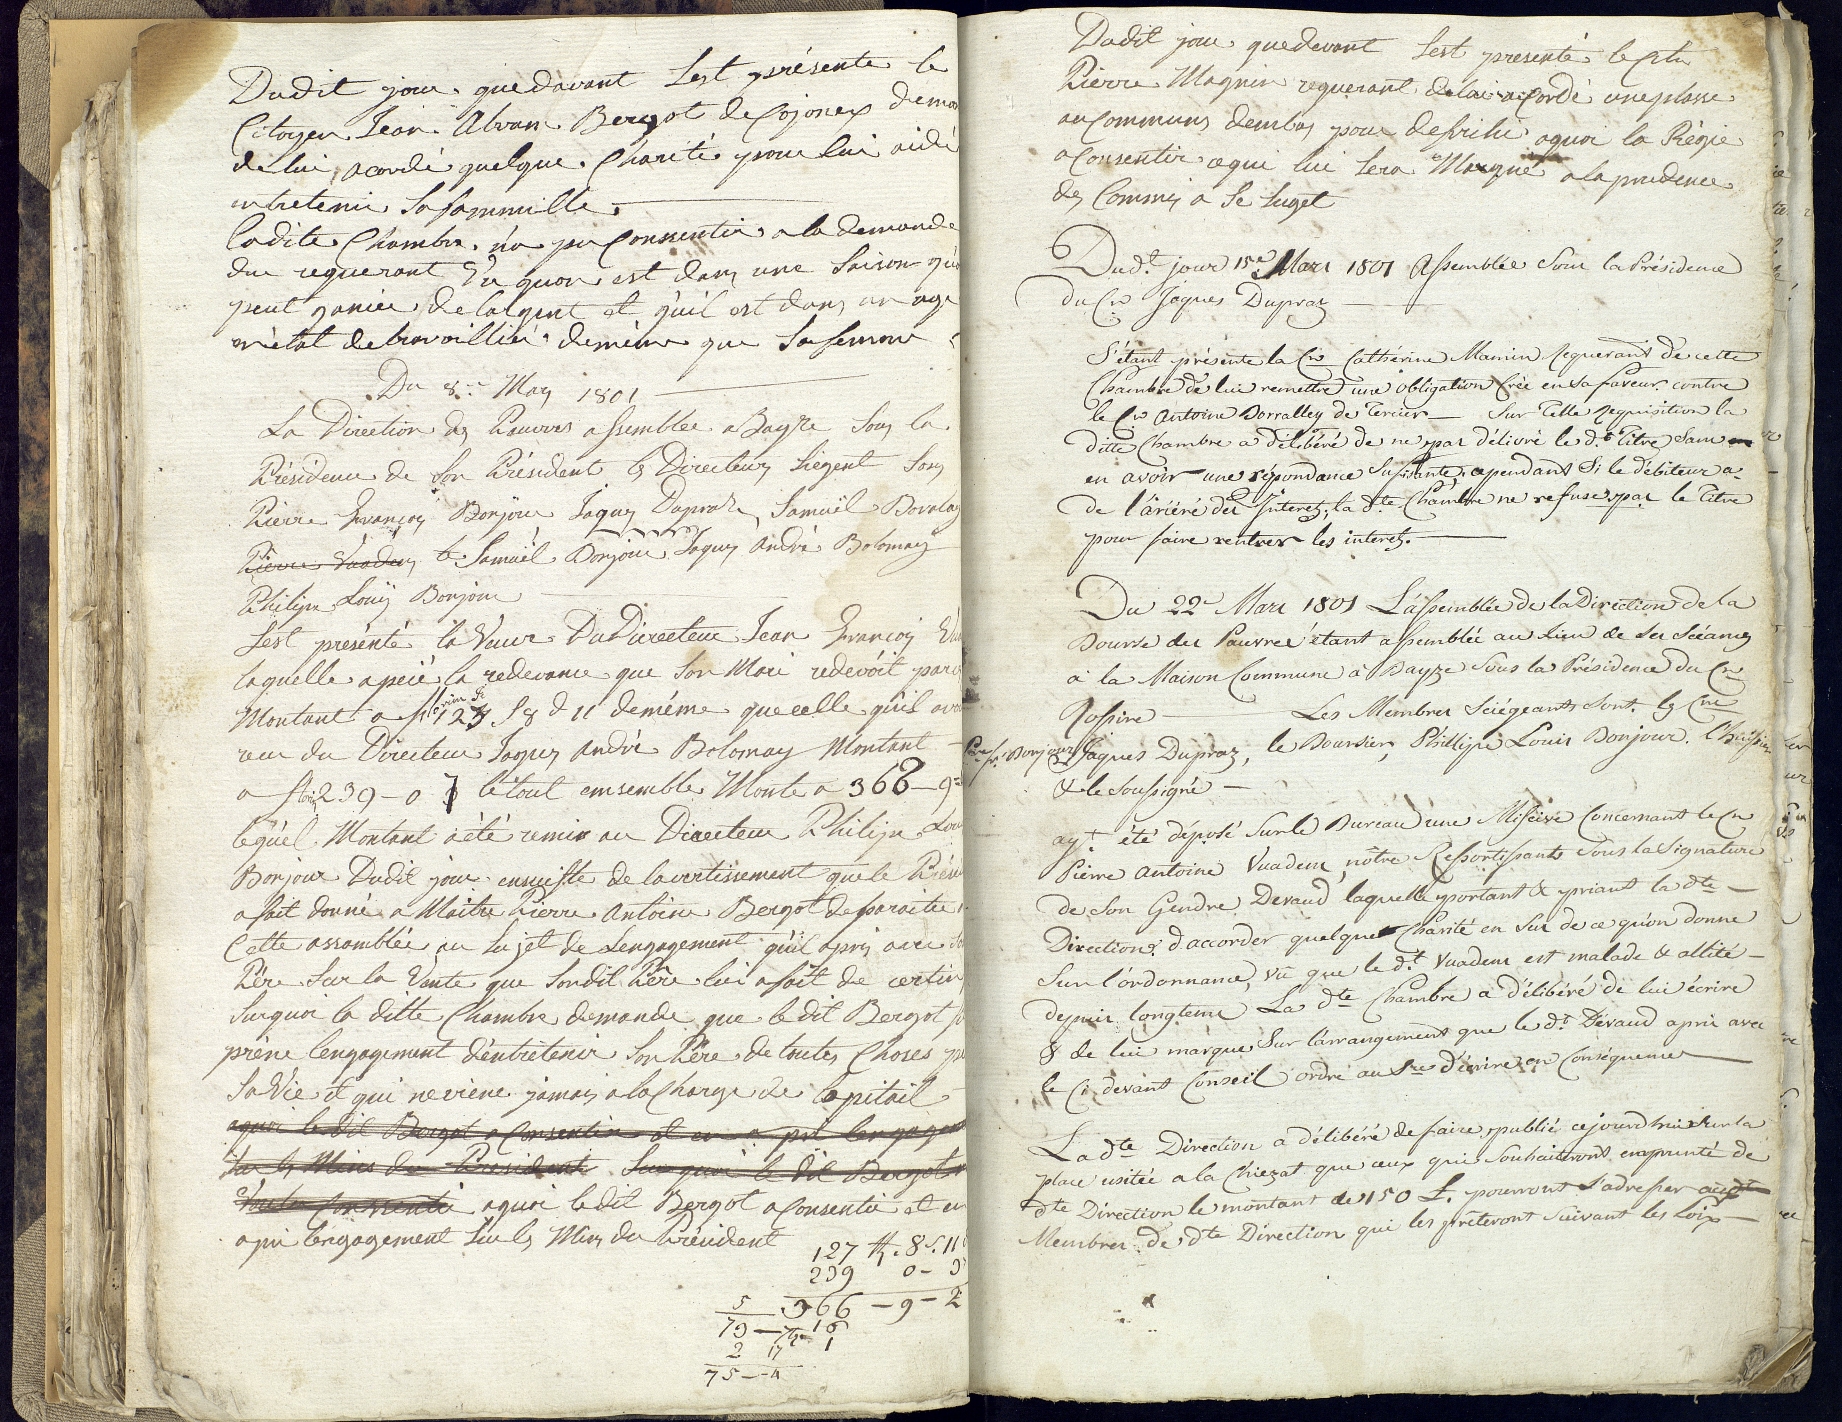 Dudit jour que davant Sest présenté le
Citoyen Jean Abram Bergot de Cojonex
de lui acordé quelque Charité pour lui aidé
entretenir Sa fammille
ladite Chambre n'a pu Conssentir a la demande
du requerant Vu quon est dans une Saison qu'on
peut ganier de largent et qu'il est dans un age
en état de travaillier de même que Sa femme
Du 8me Mars 1801
La Direction des Pauvres assemblée a Bayze Sous la
Présidence de Son Président les Directeurs Siegent Sons
Pierre François Bonjour Jaques Dupraz, Samuël Dovalay
Pierre Vuadens & Samuël Bonjour Jaques André Bolomay
Philipe Louis Bonjour
Sest présenté la Veuve Du Directeur Jean François
laquelle a peié la redevance que Son Mari redevoit
Montant a 127 S 8 d 11 de méme que celle qu'il
reçu du Directeur Jaques André Bolomay Montant
a florin 239 - 0 3 le tout emsemble Monte a 366 - 9
leqüel Montant a été remis au Directeur Philipe Louis
Bonjour Dudit jour ensuiste de lavertissement que le
a fait donné a Maitre Pierre Antoine Bergot de paraitre
Cette assamblée au Sujet de Lengagement qu'il a pris avec
Pére Sur la Vente que Sondit Pére lui a fait de certin
Surquoi la ditte Chambre demande que le dit Bergot
prène lengagement dentretenir Son Pére de toutes Choses
Sa Vie et qui ne viène jamais a la Charge de lopitail
aquoi le dit Bergot a Consentir et en a pri lengagem
Sur les Mins du Président Surquoi le dit Bergot
Conssenti aquoi le dit Bergot a Consentir et en
a pri lengagement Sur les Mins du Président
127 ff. 8 s. 11
239 0 - 3
5 366 - 9 - 2
73 - 7 16
2 17 1
75 - 4
Dudit jour que devant Sest presenté le Citn
Pierre Magnin requerant de lui acordé une plasse
au Communs dembas pour defriché aquoi la Régie
a Consentir a qui lui Sera Marqué a la prudence
des Commis a Se Suget
Dud.t jour 15e Mars 1801 Assemblée Sous la Présidence
du Cn Jaques Dupraz
S'étant présenté la Cne Cathérine Mamin Requerant de cette
Chambre de lui remettre une obligation Crée en sa faveur contre
le Cn Antoine Dorralley de Tercier — Sur Telle Requisition la
ditte Chambre a délibéré de ne pas délivré le d.t Titre Sans
en avoir une répondance Sufisante, cependant Si le débiteur a
de l'ariéré des Interets, la dte Chambre ne refuse pas le Titre
pour faire rentrer les interets.
Du 22e Mars 1801 L'assemblée de la Direction de la
Bourse des Pauvres étant assemblée au Lieu de Ses Séances
à la Maison Commune à Bayze Sous la Présidence du Cn
Rossire — Les Membres Siégeants Sont. les Cns
Pierre fs Bonjour Jaques Dupraz, le Boursier, Phillipe Louis Bonjour.
& le Soussigné —
ayt été déposé Sur le Bureau une Missive Concernant le Cn
Pierre Antoine Vuadens, nôtre Ressortissant Sous la Signature
de Son Gendre Devaud laquelle portant & priant la dte
Direction d'accorder quelque Charité en Sus de ce qu'on donne
Sur l'ordonnance, vû que le d.t Vuadens est malade & allité
depuis longtems La dte Chambre a délibéré de lui écrire
& de lui marque Sur l'arrangement que le d.t Devaud a pris avec
le Ci devant Conseil ordre au Sre d'écrire en Conséquence
La dte Direction a délibéré de faire publié cejourdhui Sur la
place usitée a la Chiezaz que ceux qui Souhaiteront emprunté de
dte Direction le montant de 150 L. pourront S'adresser audt
Membres de dte Direction qui les prêteront Suivant les Loix